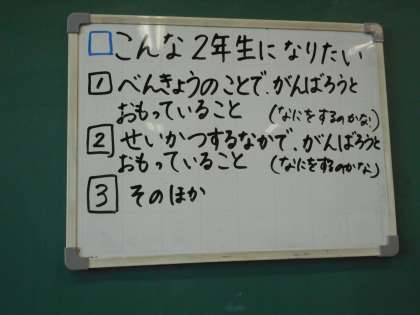 □こんな2年生になりたい
1 べんきょうのことで、がんばろうと
おもっていること (なにをするのかな)
2 せいかつするなかで、がんばろうと
おもっていること (なにをするのかな)
3 そのほか